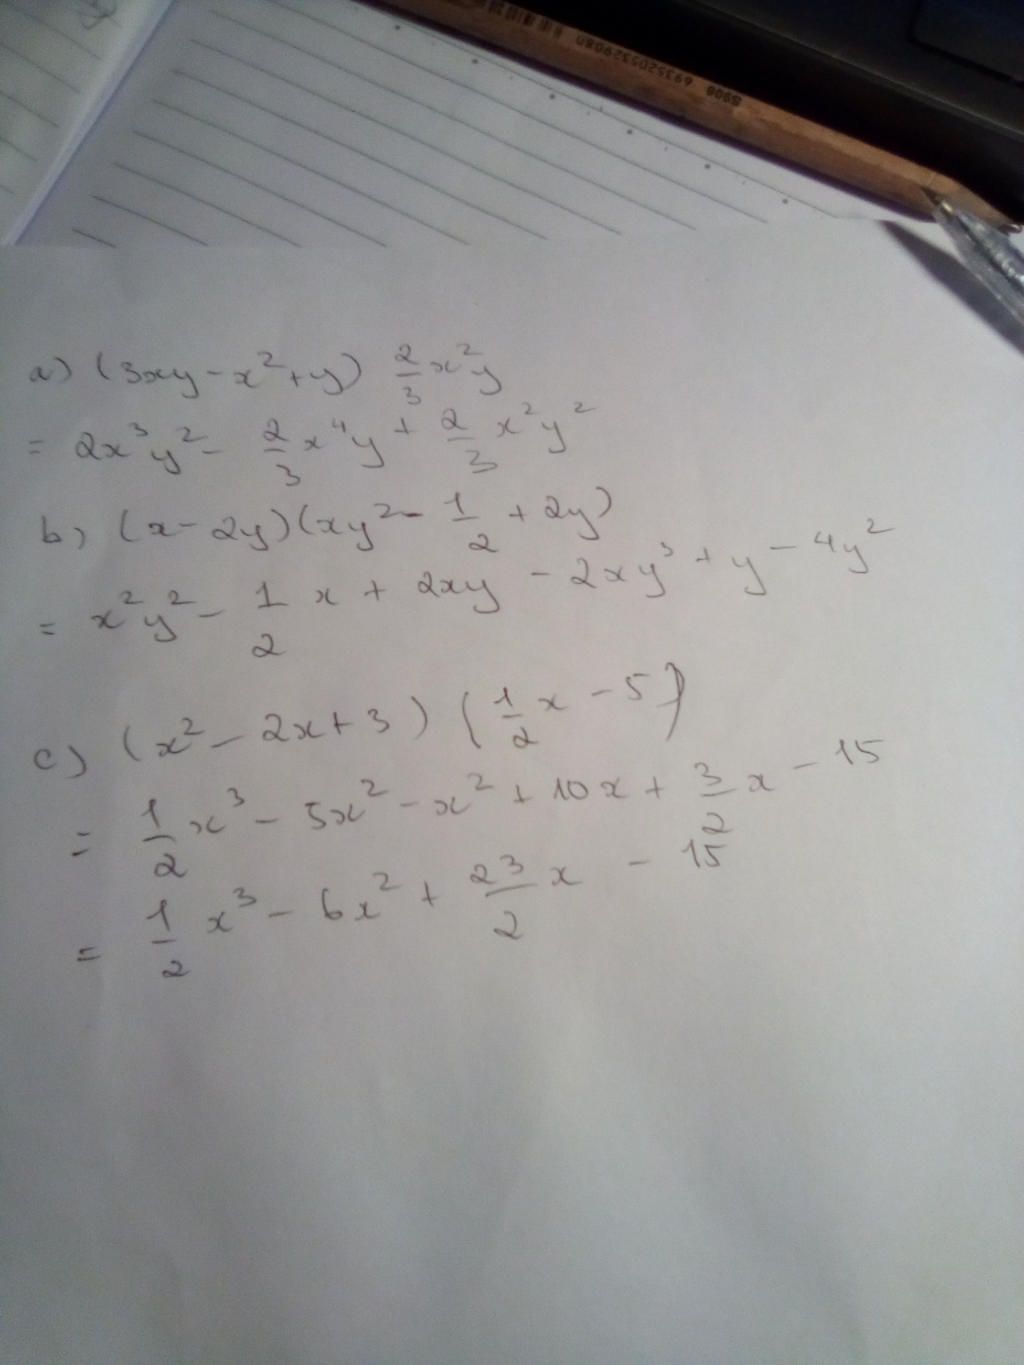 6935205329080 5808
a) (3xy - x² + y) 2/3 x²y
= 2x³y² - 2/3 x⁴y + 2/3 x²y²
b) (x - 2y)(xy² - 1/2 + 2y)
= x²y² - 1/2 x + 2xy - 2xy³ + y - 4y²
c) (x² - 2x + 3) (1/2 x - 5)
= 1/2 x³ - 5x² - x² + 10x + 3/2 x - 15
= 1/2 x³ - 6x² + 23/2 x - 15